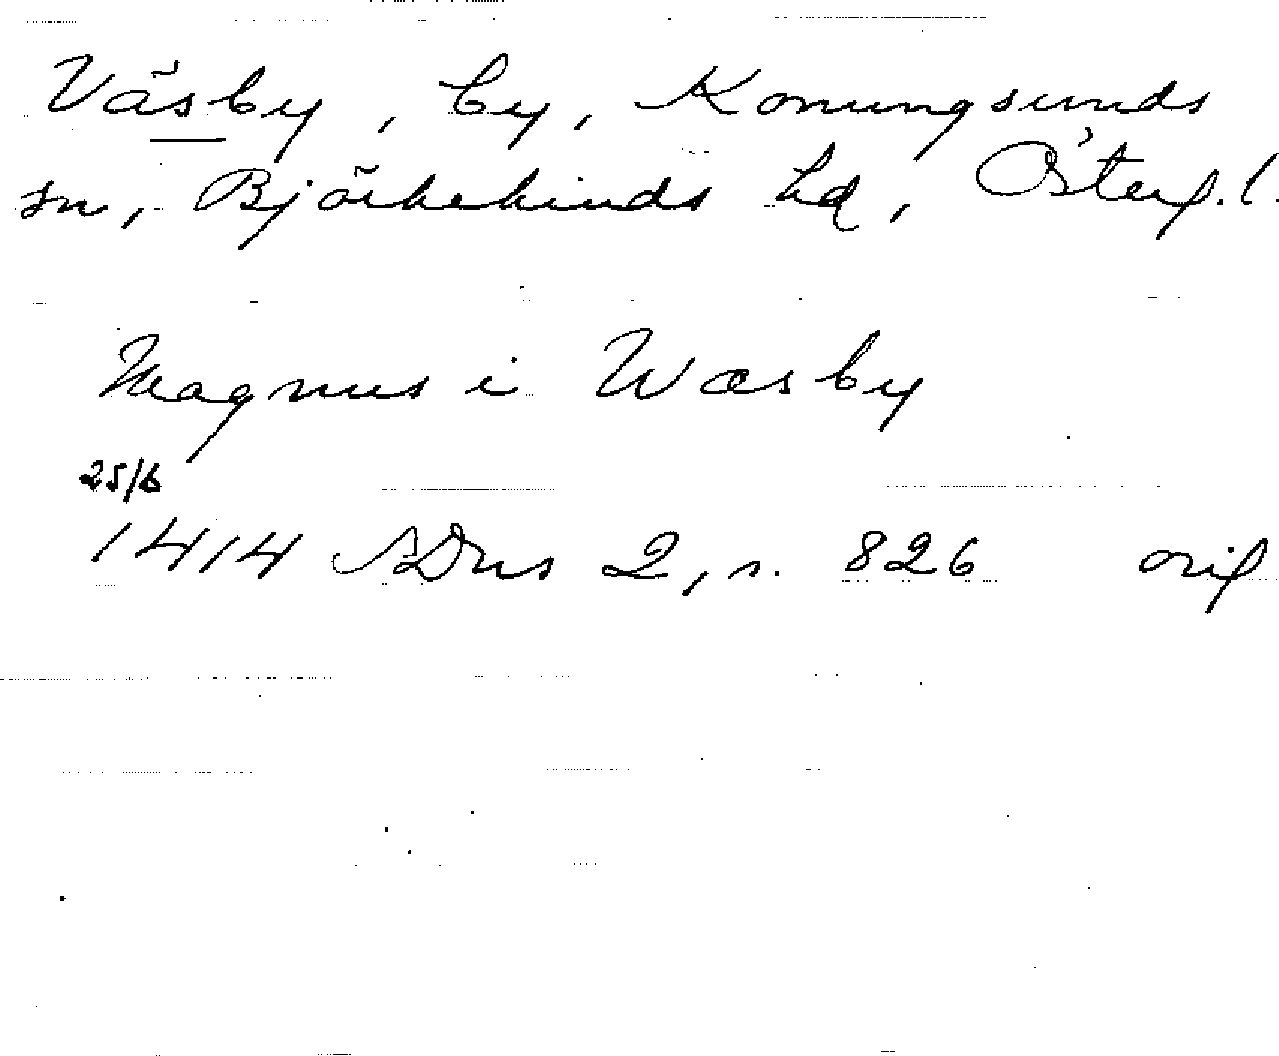 Väsby, by, Konungsunds
sn, Björkekinds hd, Österg.l.
Magnus i Wæsby
25/6
1414 SDns 2, s. 826 orig